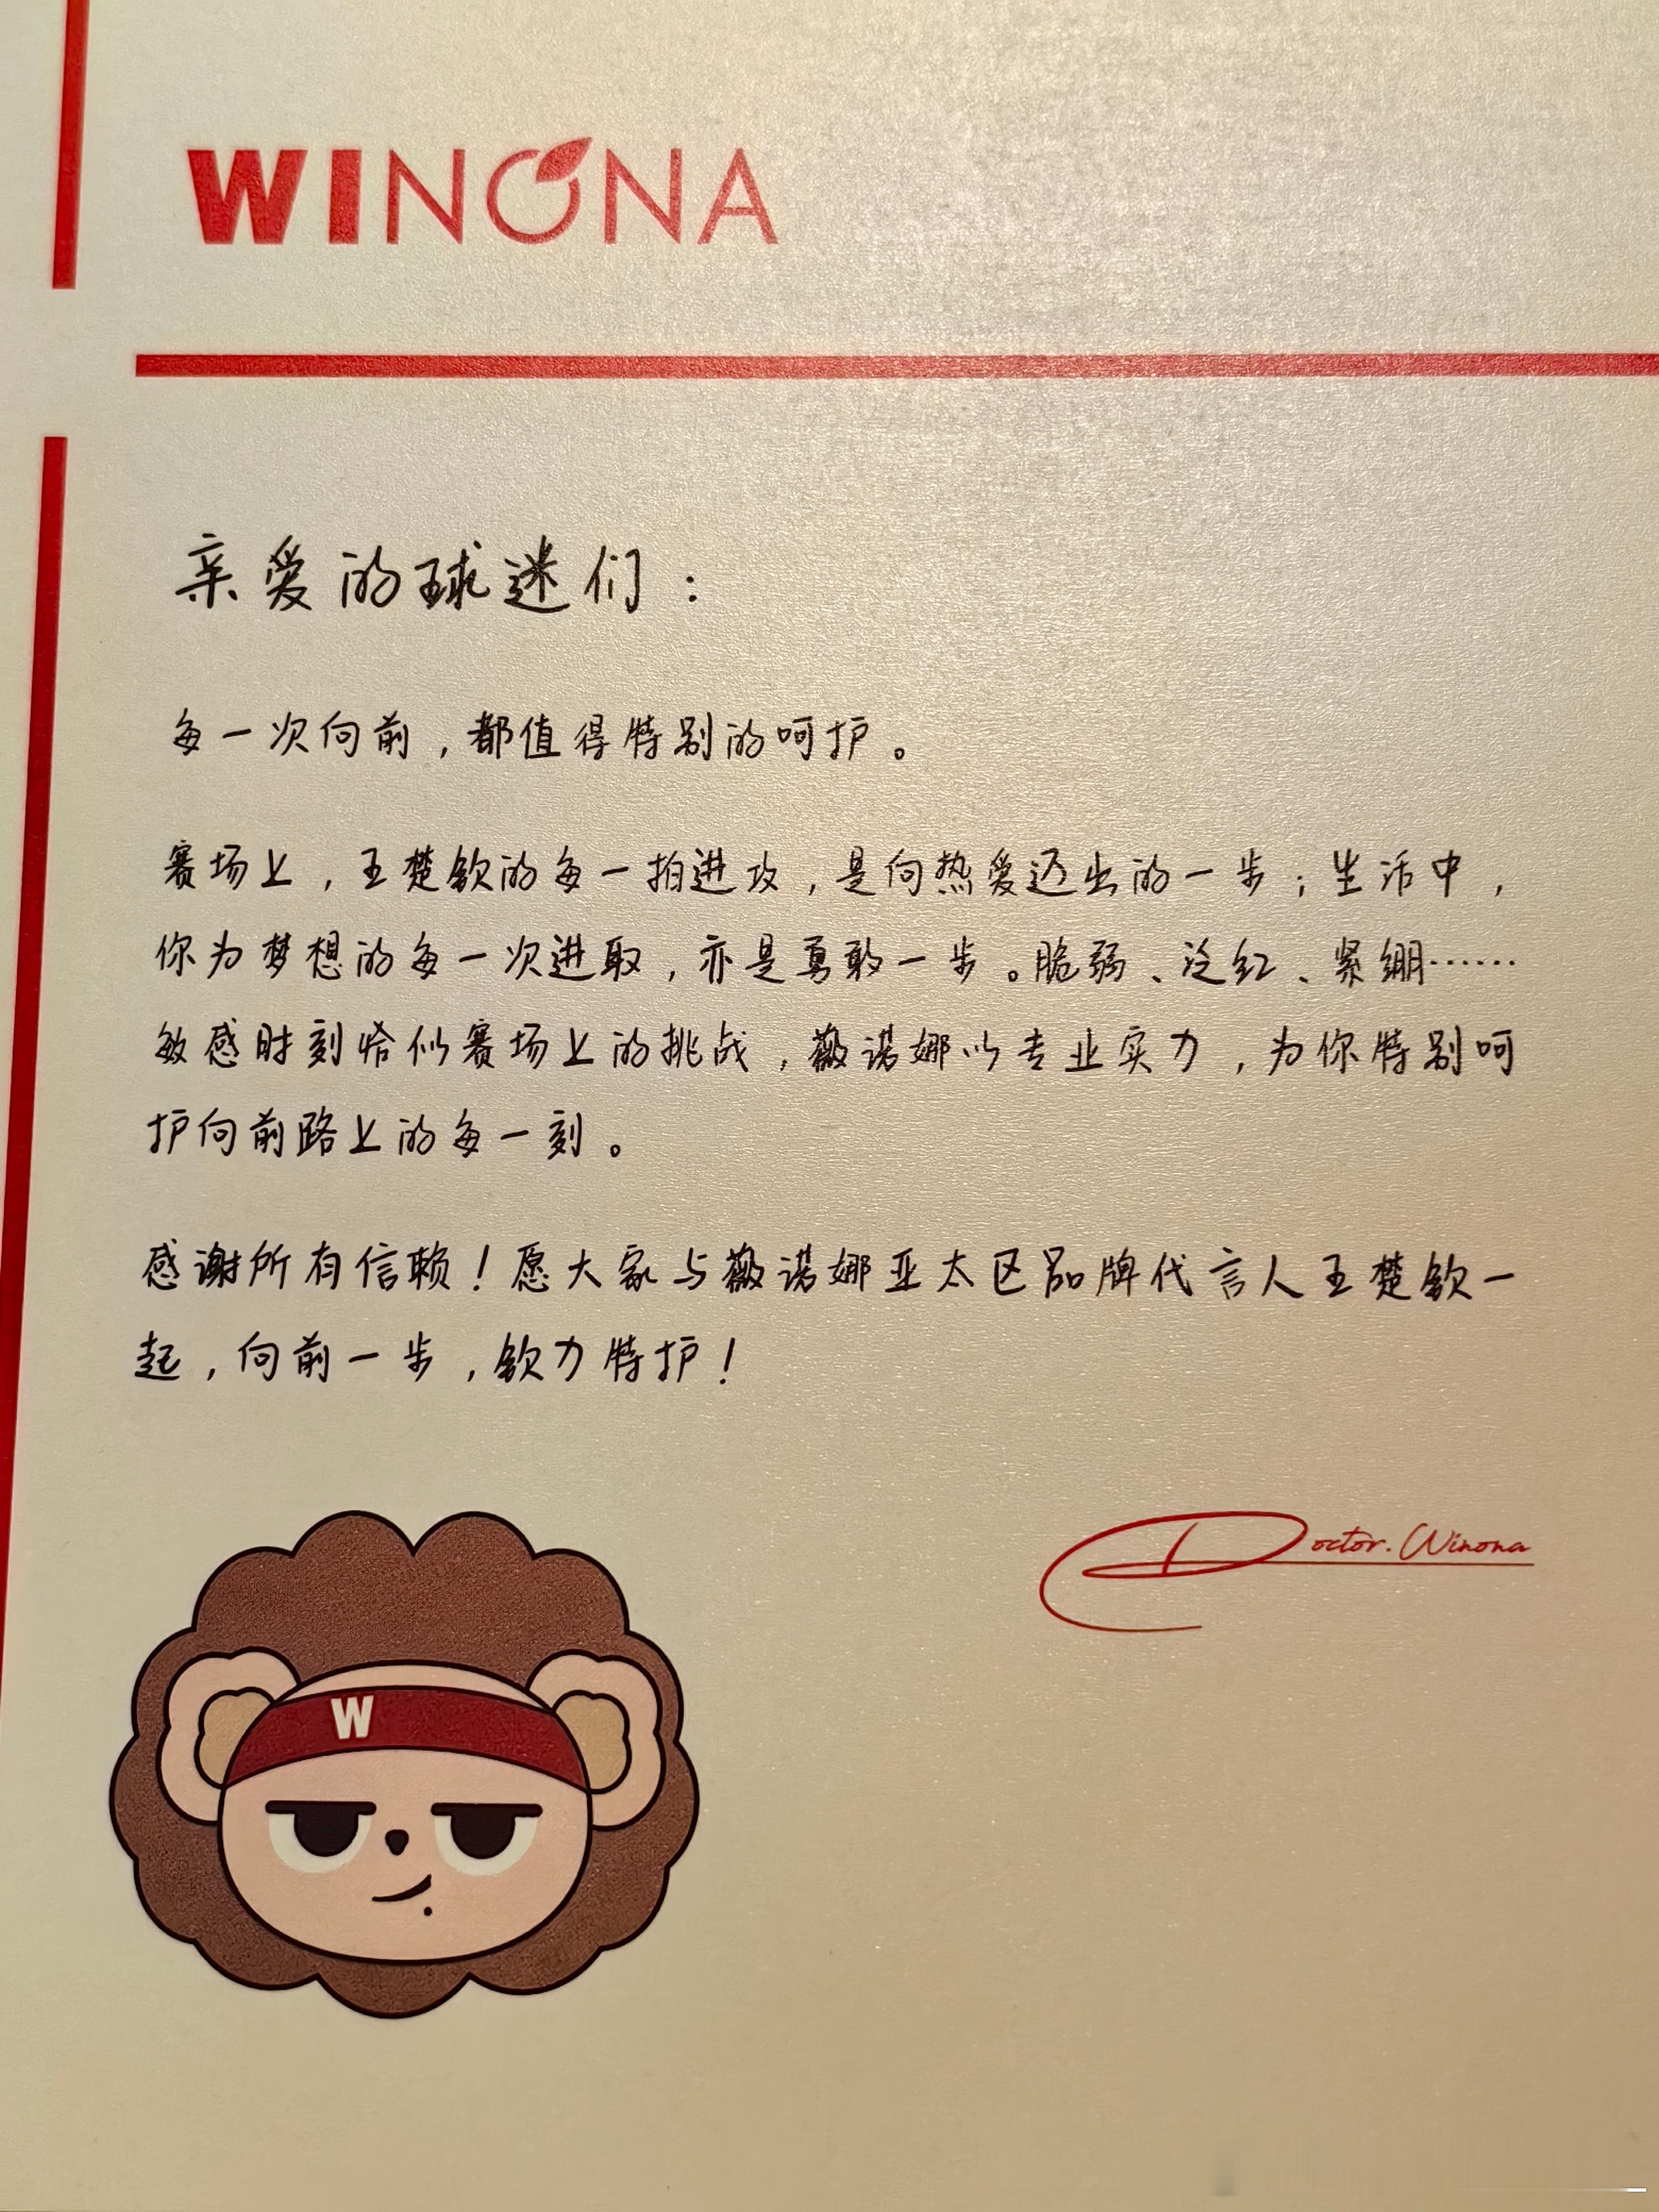 WINONA
亲爱的球迷们：
每一次向前，都值得特别的呵护。
赛场上，王楚钦的每一拍进攻，是向热爱迈出的一步；生活中，
你为梦想的每一次进取，亦是勇敢一步。脆弱、泛红、紧绷……
敏感时刻恰似赛场上的挑战，薇诺娜以专业实力，为你特别呵
护向前路上的每一刻。
感谢所有信赖！愿大家与薇诺娜亚太区品牌代言人王楚钦一
起，向前一步，钦力特护！
Doctor. Winona
W